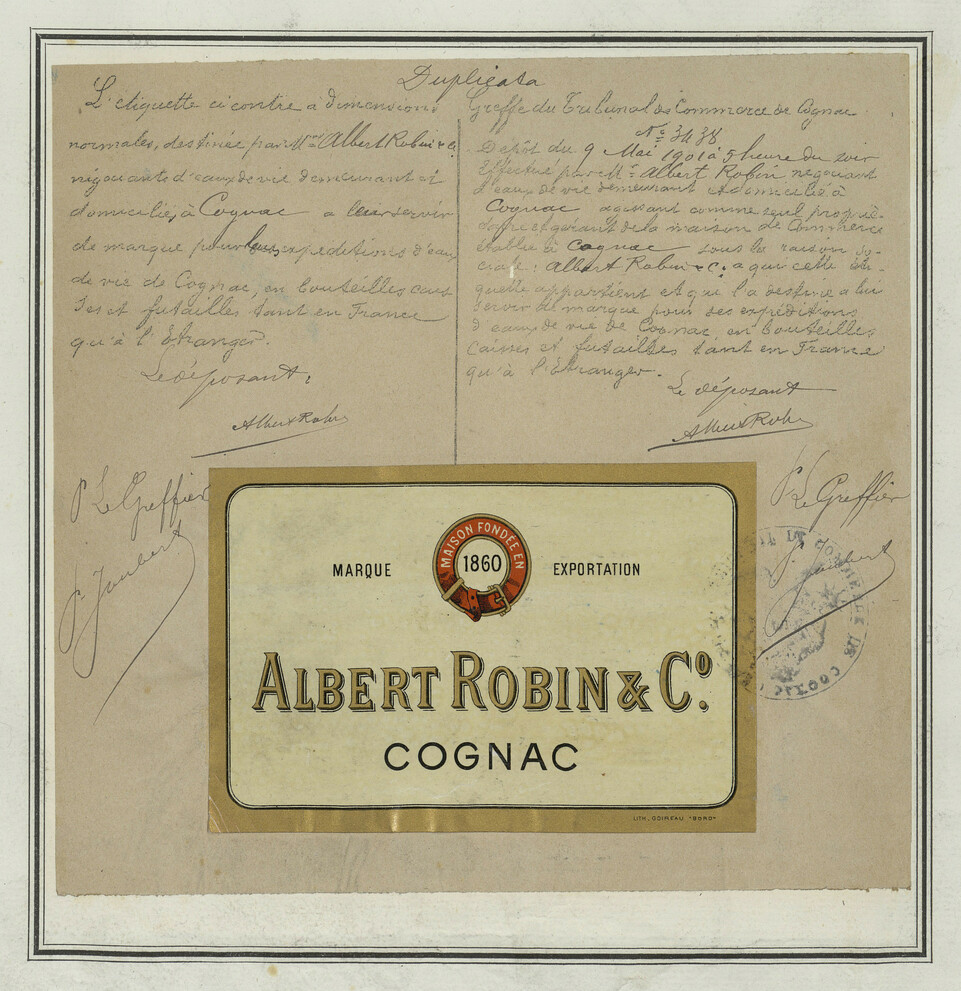 Duplicata
L'etiquette ci contre à dimensions
normales, destinée par Mr Albert Robin & Co
négociants d'eaux de vie demeurant et
domiciliés à Cognac a leur servir
de marque pour leurs expeditions d'eaux
de vie de Cognac, en bouteilles cais
ses et futailles tant en France
qu'à l'Etranger.
Le déposant,
Albert Robin
P Le Greffier
J. Joubert
Greffe du Tribunal de Commerce de Cognac
No 3438
Depôt du 9 Mai 1901 à 5 heure du soir
Effectué par Mr Albert Robin negociant
d'eaux de vie demeurant et domicilié à
Cognac agissant comme seul proprié-
taire et gérant de la maison de Commerce
établie à Cognac sous la raison so-
ciale: Albert Robin & Co a qui cette éti-
quette appartient et que l'a destine a lui
servir de marque pour ses expéditions
d'eaux de vie de Cognac, en bouteilles
caisses et futailles tant en France
qu'à l'Etranger.
Le déposant
Albert Robin
P Le Greffier
J. Joubert
MAISON FONDÉE EN
1860
MARQUE EXPORTATION
ALBERT ROBIN & Co.
COGNAC
LITH. GOIREAU "BORD"